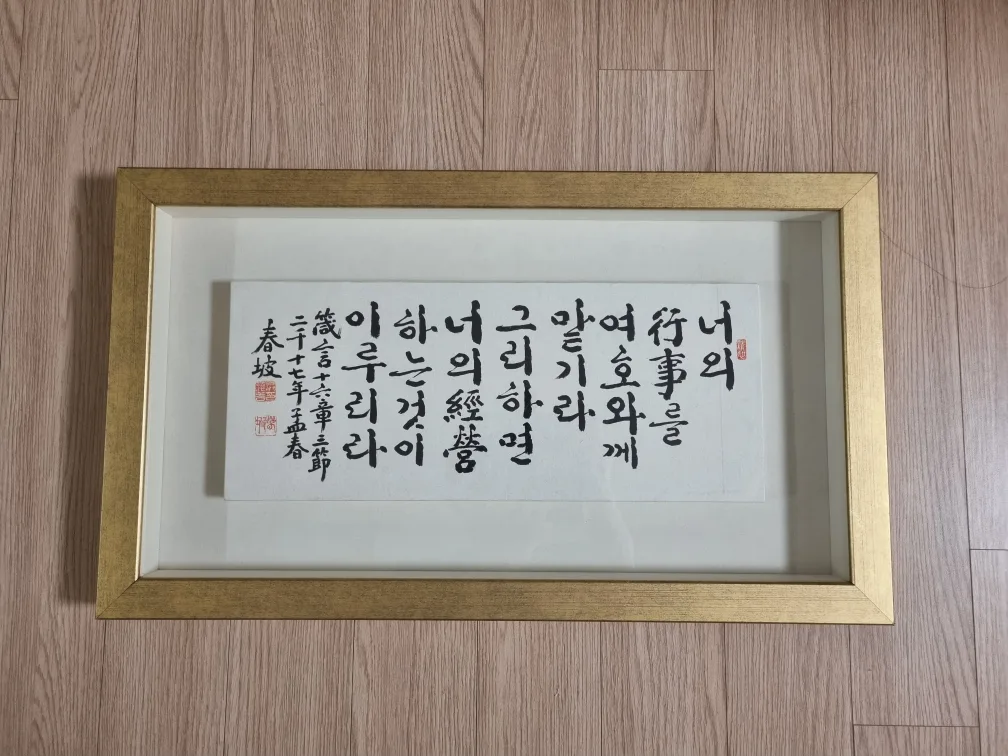 너의
行事를
여호와께
맡기라
그리하면
너의經營
하는것이
이루리라
箴言十六章三節
二千十七年孟春
春坡